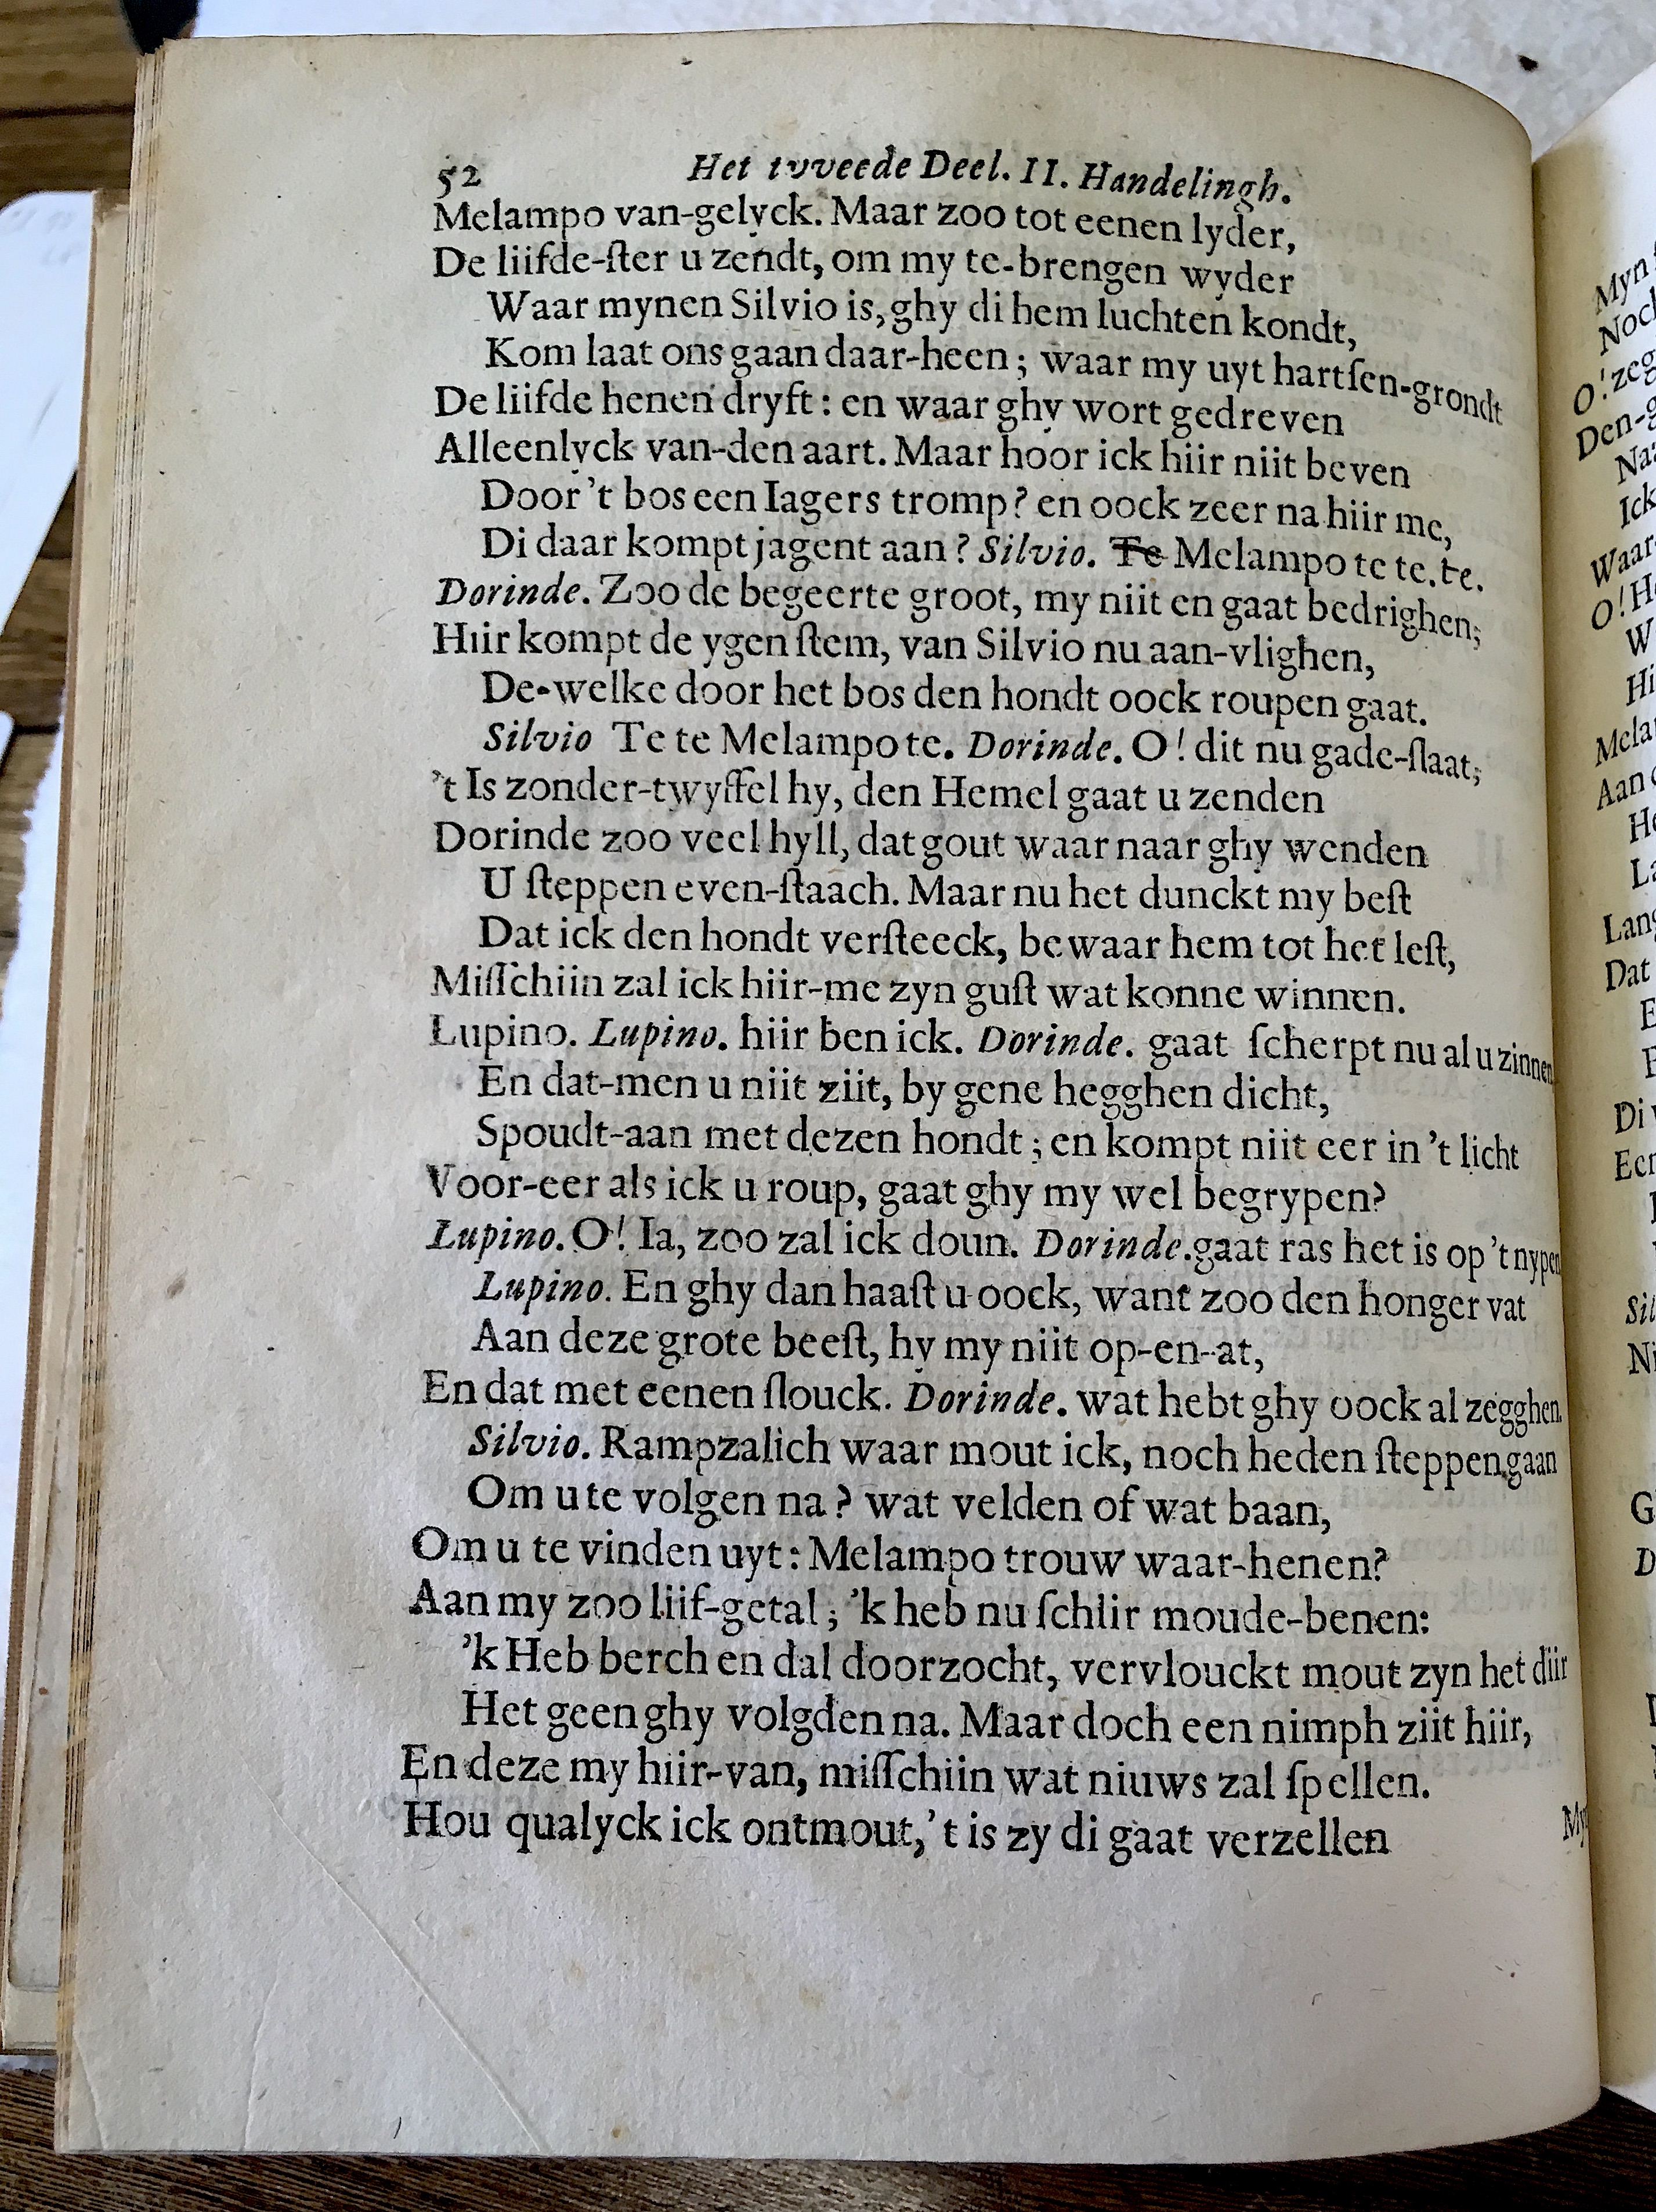 52 Het tvveede Deel. II. Handelingh.
Melampo van-gelyck. Maar zoo tot eenen lyder,
De liifde-ſter u zendt, om my te-brengen wyder
Waar mynen Silvio is, ghy di hem luchten kondt,
Kom laat ons gaan daar-heen; waar my uyt hartſen-grondt
De liifde henen dryft: en waar ghy wort gedreven
Alleenlyck van-den aart. Maar hoor ick hiir niit beven
Door 't bos een Iagers tromp? en oock zeer na hiir me,
Di daar kompt jagent aan? Silvio. Te Melampo te te. te.
Dorinde. Zoo de begeerte groot, my niit en gaat bedrighen;
Hiir kompt de ygen ſtem, van Silvio nu aan-vlighen,
De-welke door het bos den hondt oock roupen gaat.
Silvio Te te Melampo te. Dorinde. O! dit nu gade-ſlaat;
't Is zonder-twyffel hy, den Hemel gaat u zenden
Dorinde zoo veel hyll, dat gout waar naar ghy wenden
U ſteppen even-ſtaach. Maar nu het dunckt my beſt
Dat ick den hondt verſteeck, bewaar hem tot het leſt,
Miſſchiin zal ick hiir-me zyn guſt wat konne winnen.
Lupino. Lupino. hiir ben ick. Dorinde. gaat ſcherpt nu al u zinnen
En dat-men u niit ziit, by gene hegghen dicht,
Spoudt-aan met dezen hondt; en kompt niit eer in 't licht
Voor-eer als ick u roup, gaat ghy my wel begrypen?
Lupino. O! Ia, zoo zal ick doun. Dorinde. gaat ras het is op 't nypen
Lupino. En ghy dan haaſt u oock, want zoo den honger vat
Aan deze grote beeſt, hy my niit op-en-at,
En dat met eenen ſlouck. Dorinde. wat hebt ghy oock al zegghen
Silvio. Rampzalich waar mout ick, noch heden ſteppen gaan
Om u te volgen na? wat velden of wat baan,
Om u te vinden uyt: Melampo trouw waar-henen?
Aan my zoo liif-getal; 'k heb nu ſchiir moude-benen:
'k Heb berch en dal doorzocht, vervlouckt mout zyn het diir
Het geen ghy volgden na. Maar doch een nimph ziit hiir,
En deze my hiir-van, miſſchiin wat niuws zal ſpellen.
Hou qualyck ick ontmout, 't is zy di gaat verzellen
Myn
Noch
O! zeg
Den-g
Naa
Ick
Waar
O! H
W
Hi
Mela
Aan
He
La
Lang
Dat
E
Di
Een
Sil
Ni
G
D